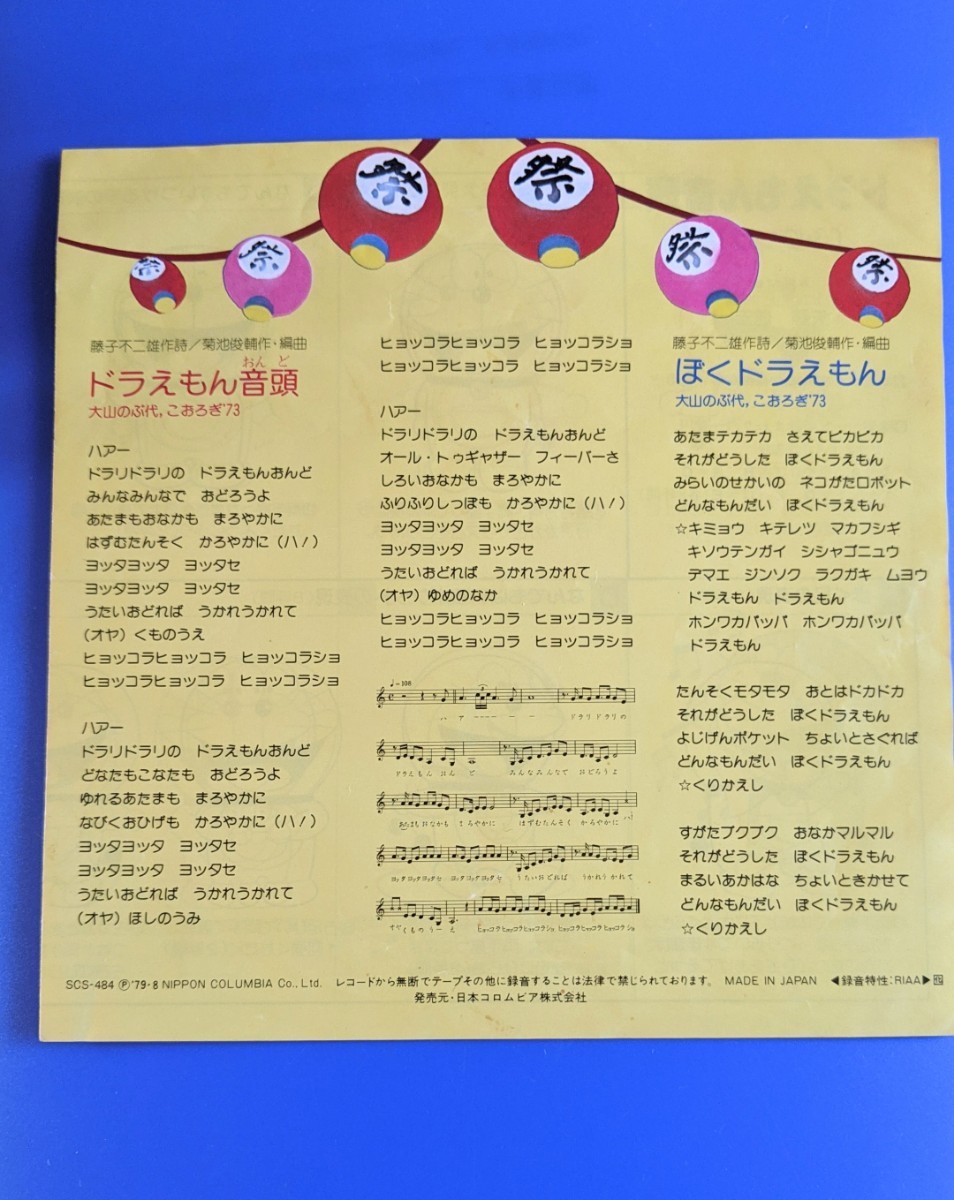 祭
祭
祭
祭
祭
祭
藤子不二雄作詩／菊池俊輔作・編曲
おんど
ドラえもん音頭
大山のぶ代，こおろぎ'73
ハアー
ドラリドラリの　ドラえもんおんど
みんなみんなで　おどろうよ
あたまもおなかも　まろやかに
はずむたんそく　かろやかに（ハ！）
ヨッタヨッタ　ヨッタセ
ヨッタヨッタ　ヨッタセ
うたいおどれば　うかれうかれて
（オヤ）くものうえ
ヒョッコラヒョッコラ　ヒョッコラショ
ヒョッコラヒョッコラ　ヒョッコラショ
ハアー
ドラリドラリの　ドラえもんおんど
どなたもこなたも　おどろうよ
ゆれるあたまも　まろやかに
なびくおひげも　かろやかに（ハ！）
ヨッタヨッタ　ヨッタセ
ヨッタヨッタ　ヨッタセ
うたいおどれば　うかれうかれて
（オヤ）ほしのうみ
ヒョッコラヒョッコラ　ヒョッコラショ
ヒョッコラヒョッコラ　ヒョッコラショ
ハアー
ドラリドラリの　ドラえもんおんど
オール・トゥギャザー　フィーバーさ
しろいおなかも　まろやかに
ふりふりしっぽも　かろやかに（ハ！）
ヨッタヨッタ　ヨッタセ
ヨッタヨッタ　ヨッタセ
うたいおどれば　うかれうかれて
（オヤ）ゆめのなか
ヒョッコラヒョッコラ　ヒョッコラショ
ヒョッコラヒョッコラ　ヒョッコラショ
♩=108
ハ　ア　ドラリドラリの
ドラえもん おん ど　みんなみんなで おどろうよ
あたまもおなかも まろやかに　はずむたんそく かろやかに ハ！
ヨッタヨッタヨッタセ　ヨッタヨッタヨッタセ　うたいおどれば うかれうかれて
ヒョッコラヒョッコラヒョッコラショ　ヒョッコラヒョッコラヒョッコラショ
藤子不二雄作詩／菊池俊輔作・編曲
ぼくドラえもん
大山のぶ代，こおろぎ'73
あたまテカテカ　さえてピカピカ
それがどうした　ぼくドラえもん
みらいのせかいの　ネコがたロボット
どんなもんだい　ぼくドラえもん
☆キミョウ　キテレツ　マカフシギ
キソウテンガイ　シシャゴニュウ
デマエ　ジンソク　ラクガキ　ムヨウ
ドラえもん　ドラえもん
ホンワカパッパ　ホンワカパッパ
ドラえもん
たんそくモタモタ　おとはドカドカ
それがどうした　ぼくドラえもん
よじげんポケット　ちょいとさぐれば
どんなもんだい　ぼくドラえもん
☆くりかえし
すがたプクプク　おなかマルマル
それがどうした　ぼくドラえもん
まるいあかはな　ちょいときかせて
どんなもんだい　ぼくドラえもん
☆くりかえし
SCS-484 Ⓟ'79・8 NIPPON COLUMBIA Co., Ltd.　レコードから無断でテープその他に録音することは法律で禁じられております。　MADE IN JAPAN　◀録音特性：RIAA▶
発売元・日本コロムビア株式会社